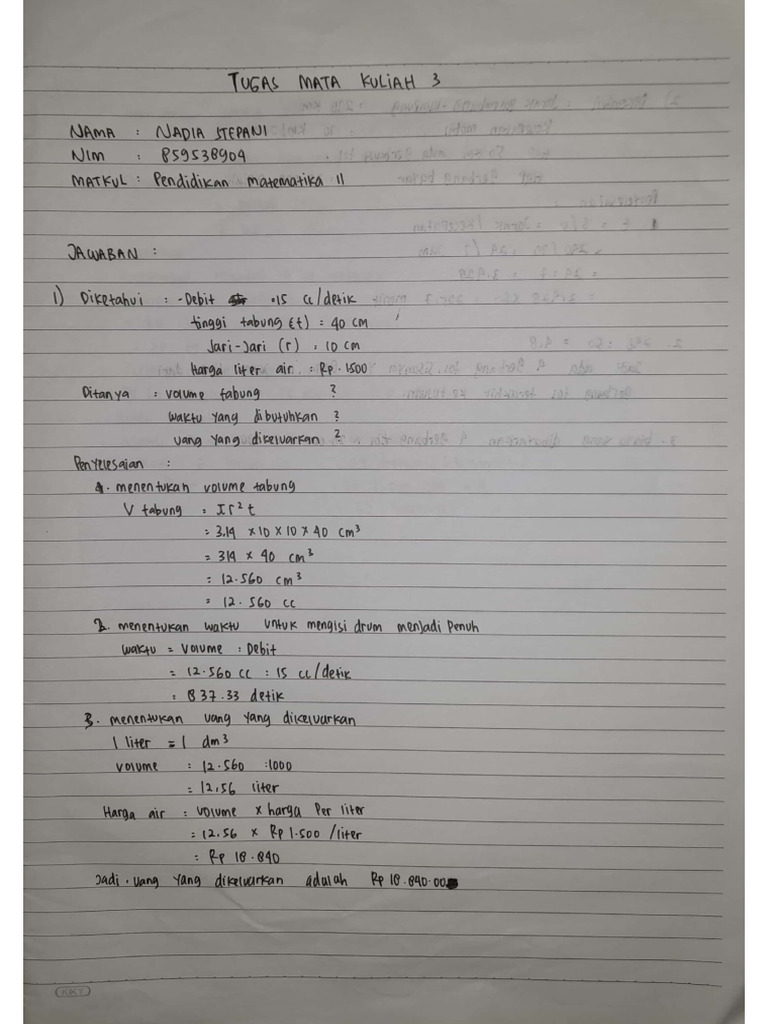 TUGAS MATA KULIAH 3
NAMA : NADIA STEPANI
NIM : 859538904
MATKUL : Pendidikan matematika II
JAWABAN :
1) Diketahui : - Debit : 15 cc/detik
tinggi tabung (t) = 40 cm
Jari-Jari (r) = 10 cm
Harga liter air : Rp. 1500
Ditanya : volume tabung ?
waktu yang dibutuhkan ?
uang yang dikeluarkan ?
Penyelesaian :
1. menentukan volume tabung
V tabung = πr²t
= 3.14 × 10 × 10 × 40 cm³
= 314 × 40 cm³
= 12.560 cm³
= 12.560 cc
2. menentukan waktu untuk mengisi drum menjadi penuh
waktu = volume : Debit
= 12.560 cc : 15 cc/detik
= 837.33 detik
3. menentukan uang yang dikeluarkan
1 liter = 1 dm³
volume = 12.560 :1000
= 12,56 liter
Harga air = volume × harga per liter
= 12.56 × Rp 1.500 /liter
= Rp 18.840
Jadi. uang yang dikeluarkan adalah Rp 18.840.00
KKY